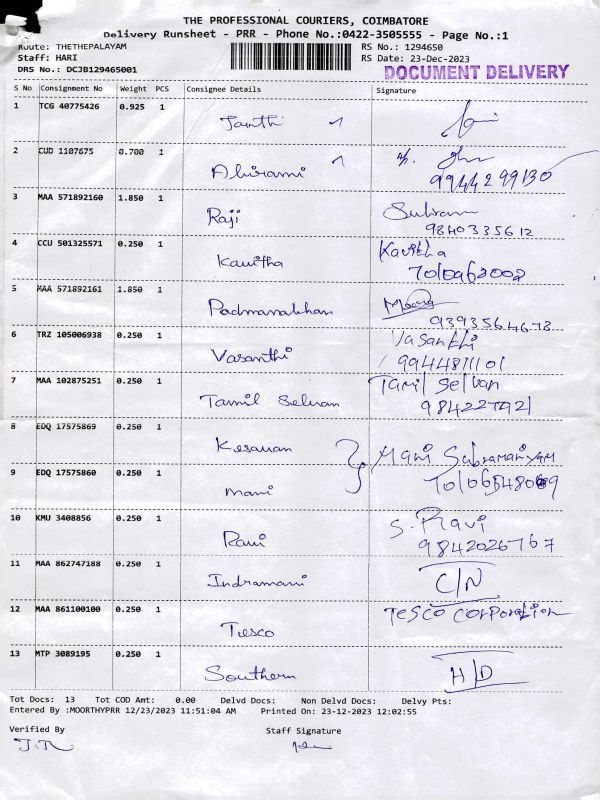 THE PROFESSIONAL COURIERS, COIMBATORE
Delivery Runsheet - PRR - Phone No.:0422-3505555 - Page No.:1
Route: THETHEPALAYAM RS No.: 1294650
Staff: HARI RS Date: 23-Dec-2023
DRS No.: DCJB129465001 DOCUMENT DELIVERY
S No Consignment No Weight PCS Consignee Details Signature
1 TCG 40775426 0.925 1
Janthi
2 CUD 1107675 0.700 1
Abirami 9944299130
3 MAA 571892160 1.850 1
Raji 9840335612
4 CCU 501325571 0.250 1 Kavitha
Kavitha 7010962002
5 MAA 571892161 1.850 1
Padmanabhan 9393564678
6 TRZ 105006938 0.250 1 Vasanthi
Vasanthi 9944811101
7 MAA 102875251 0.250 1 Tamil Selvan
Tamil Selvan 984227921
8 EDQ 17575869 0.250 1
Kesavan Mani Subramaniyam
9 EDQ 17575860 0.250 1
Mani
10 KMU 3408856 0.250 1 S. Ravi
Ravi 9842026767
11 MAA 862747188 0.250 1
Indramani C/N
12 MAA 861100100 0.250 1 Tesco Corporation
Tesco
13 MTP 3089195 0.250 1
Southern H/D
Tot Docs: 13 Tot COD Amt: 0.00 Delvd Docs: Non Delvd Docs: Delvy Pts:
Entered By :MOORTHYPRR 12/23/2023 11:51:04 AM Printed On: 23-12-2023 12:02:55
Verified By Staff Signature